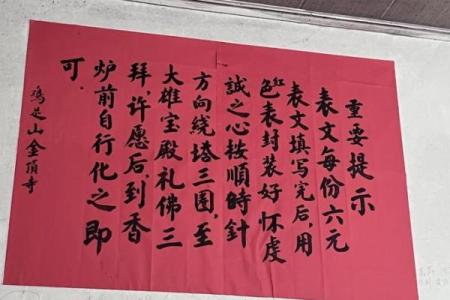 重要提示
表文每份六元
表文填写完后,用
红色表封装好怀虔
誠之心按順時針
方向绕塔三圈,至
大雄宝殿礼佛三
拜,许愿后,到香
炉前自行化之即
可.
鸡足山金頂寺